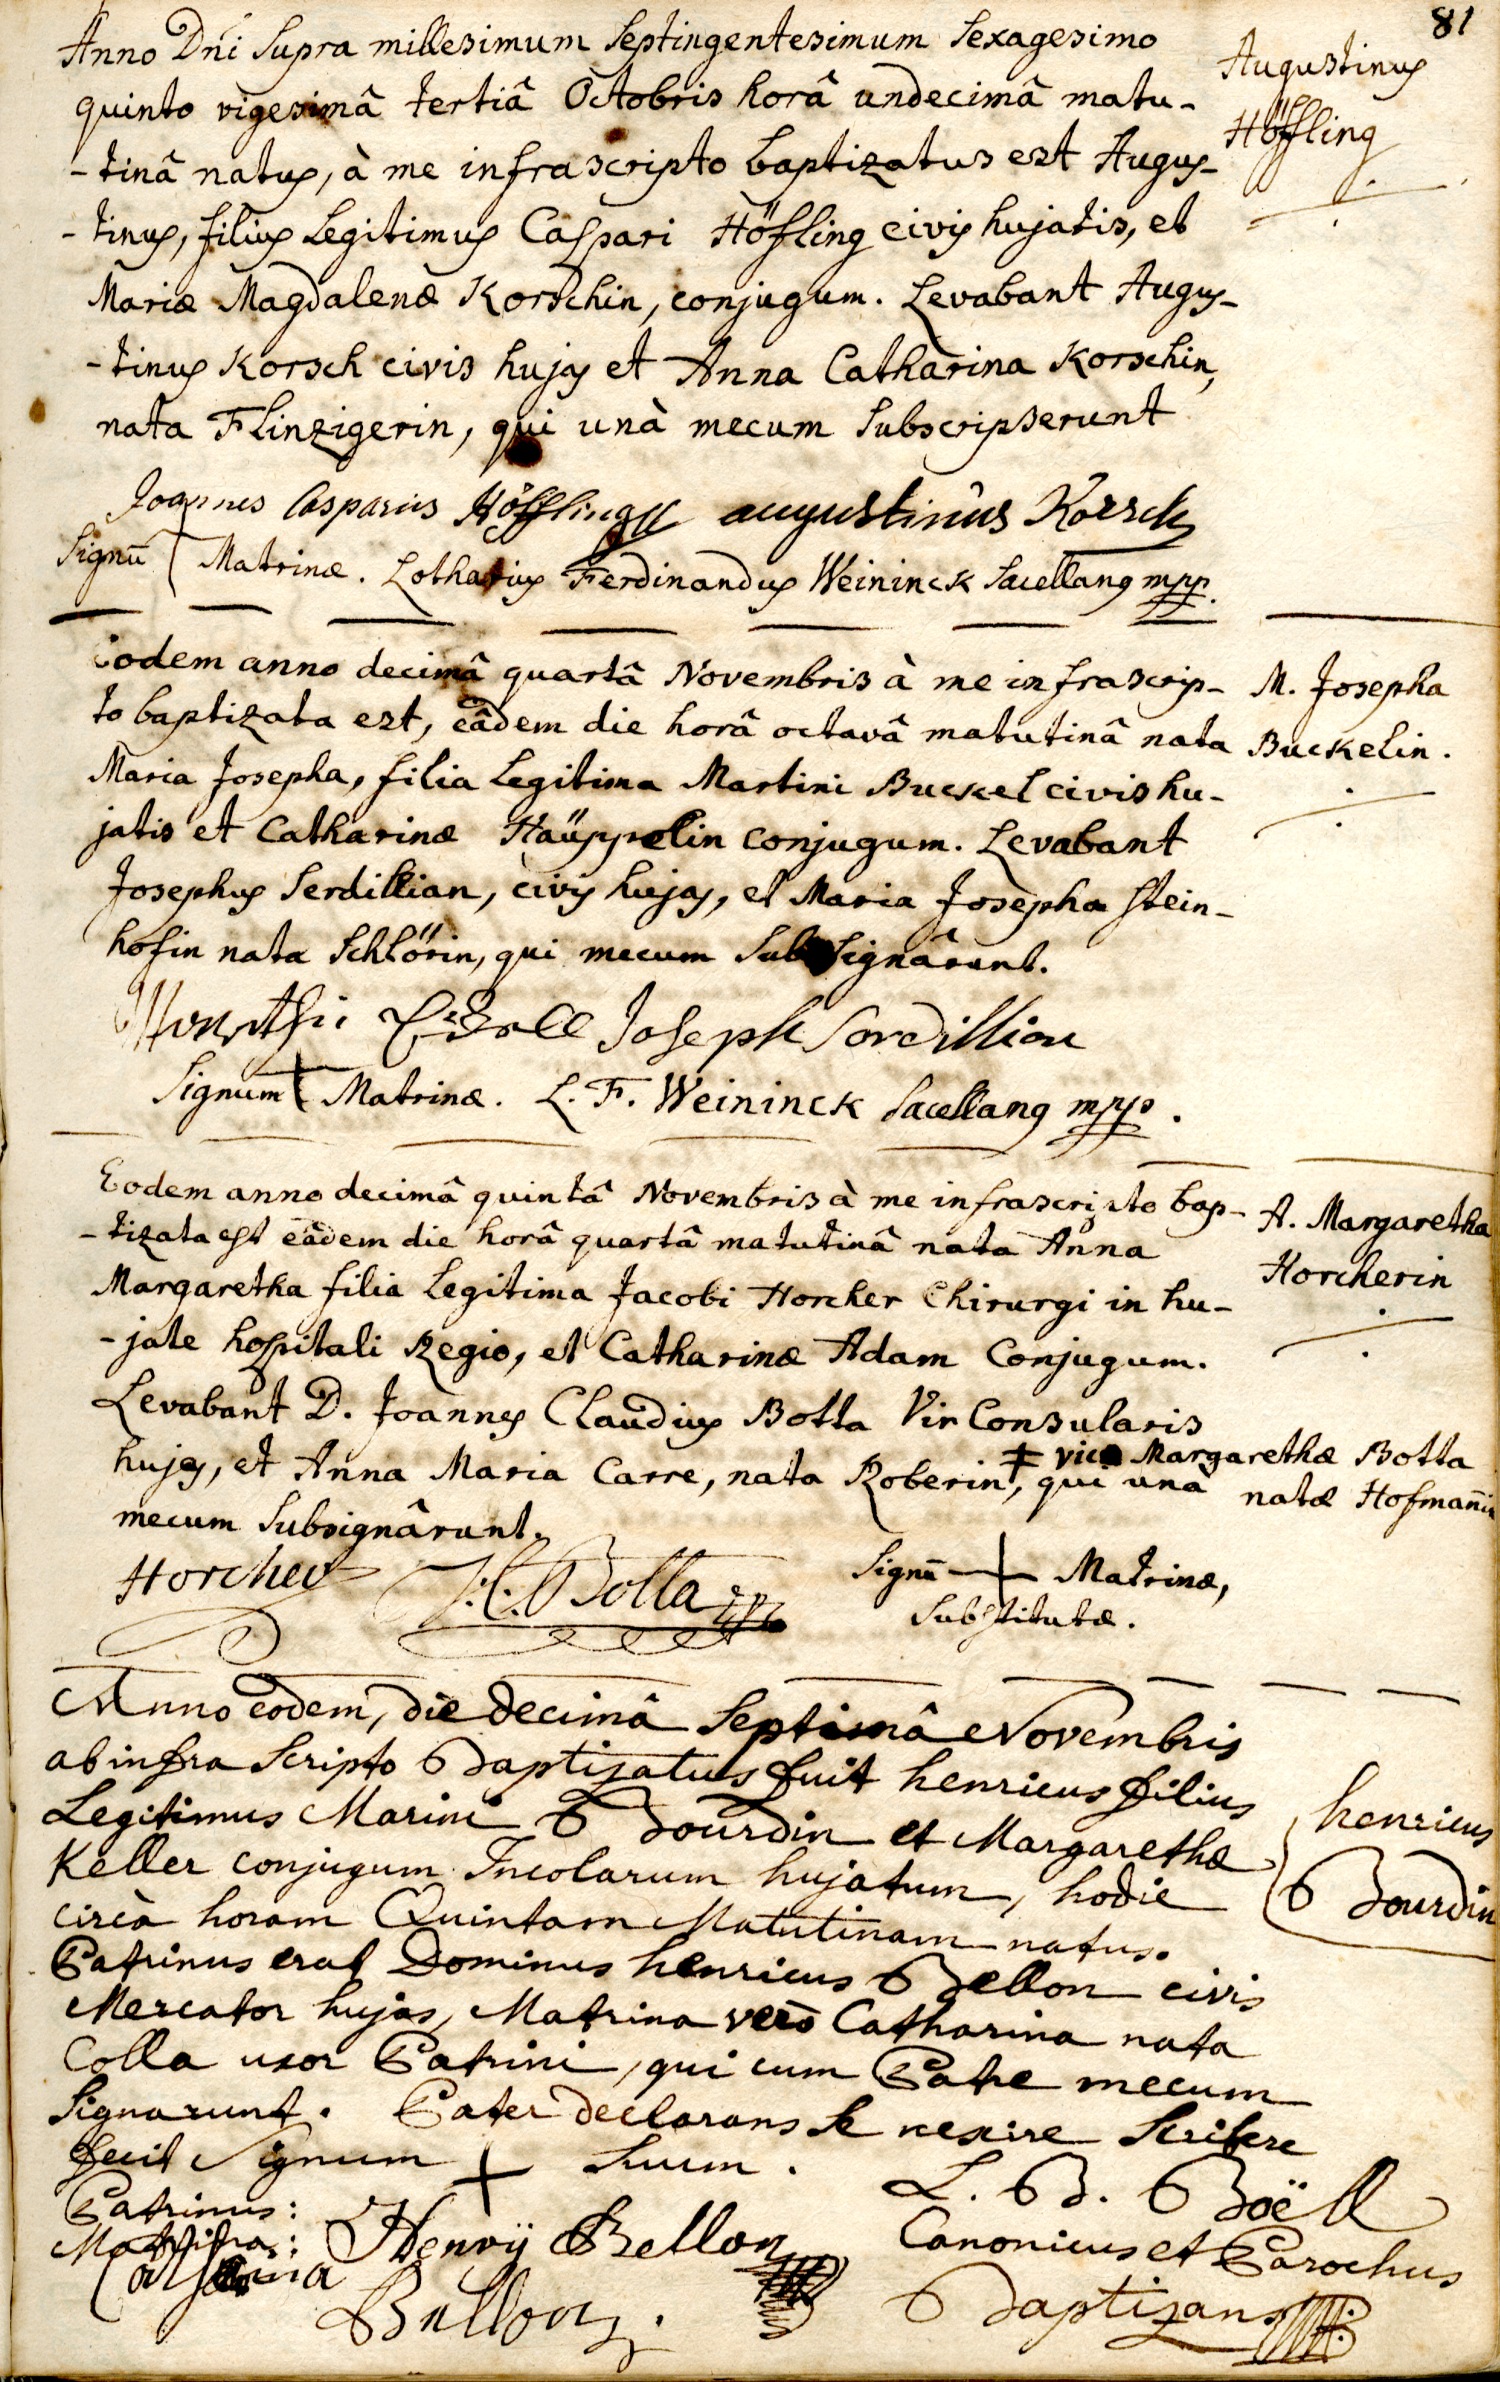 81
Anno Dñi Supra millesimum Septingentesimum Sexagesimo
quinto vigesimâ tertiâ Octobris horâ undecimâ matu-
-tinâ natus, à me infrascripto baptizatus est Augus-
-tinus, filius Legitimus Caspari Höfling civis hujatis, et
Mariæ Magdalenæ Korschin, conjugum. Levabant Augus-
-tinus Korsch civis hujas et Anna Catharina Korschin,
nata Flinzigerin, qui unà mecum Subscripserunt
Augustinus
Höffling
Joannes Casparus Höffling augustinus Korsch
Signū Matrinæ. Lotharius Ferdinandus Weininck Sacellang mpp.
Eodem anno decimâ quartâ Novembris à me infrascrip-
to baptizata est, eâdem die horâ octavâ matutinâ nata
Maria Josepha, filia Legitima Martini Buckel civis hu-
jatis et Catharinæ Haüppelin conjugum. Levabant
Josephus Serdillian, civis hujas, et Maria Josepha Stein-
hofin nata Schlörin, qui mecum Subsignârunt.
M. Josepha
Buckelin.
Joseph Sordillion
Signum + Matrinæ. L. F. Weininck Sacellang mpp.
Eodem anno decimâ quintâ Novembris à me infrascripto bap-
-tizata est eâdem die horâ quartâ matutinâ nata Anna
Margaretha filia Legitima Jacobi Horcher Chirurgi in hu-
-jate hospitali Regio, et Catharinæ Adam Conjugum.
Levabant D. Joannes Claudius Botta Vir Consularis
hujas, et Anna Maria Carre, nata Roberin ‡, qui unà
mecum Subsignârunt.
A. Margaretha
Horcherin
‡ vice Margarethæ Botta
natæ Hofmañin
Horcher J. C. Botta
Signū + Matrinæ,
Substitutæ.
Anno eodem, die decimâ Septimâ Novembris
ab infra Scripto Baptizatus fuit henricus filius
Legitimus Marini Bourdin et Margarethæ
Keller conjugum Incolarum hujatum, hodie
circà horam Quintam Matutinam natus.
Patrinus erat Dominus henricus Bellon civis
Mercator hujas, Matrina verò Catharina nata
Colla uxor Patrini, qui cum Patre mecum
Signarunt. Pater declarans Se nescire Scribere
fecit Signum + Suum.
henricus
Bourdin
Patrinus: Henrÿ Bellon
Matrina: Catharina
Bellon.
L. B. Boëll
Canonicus et Parochus
Baptizans